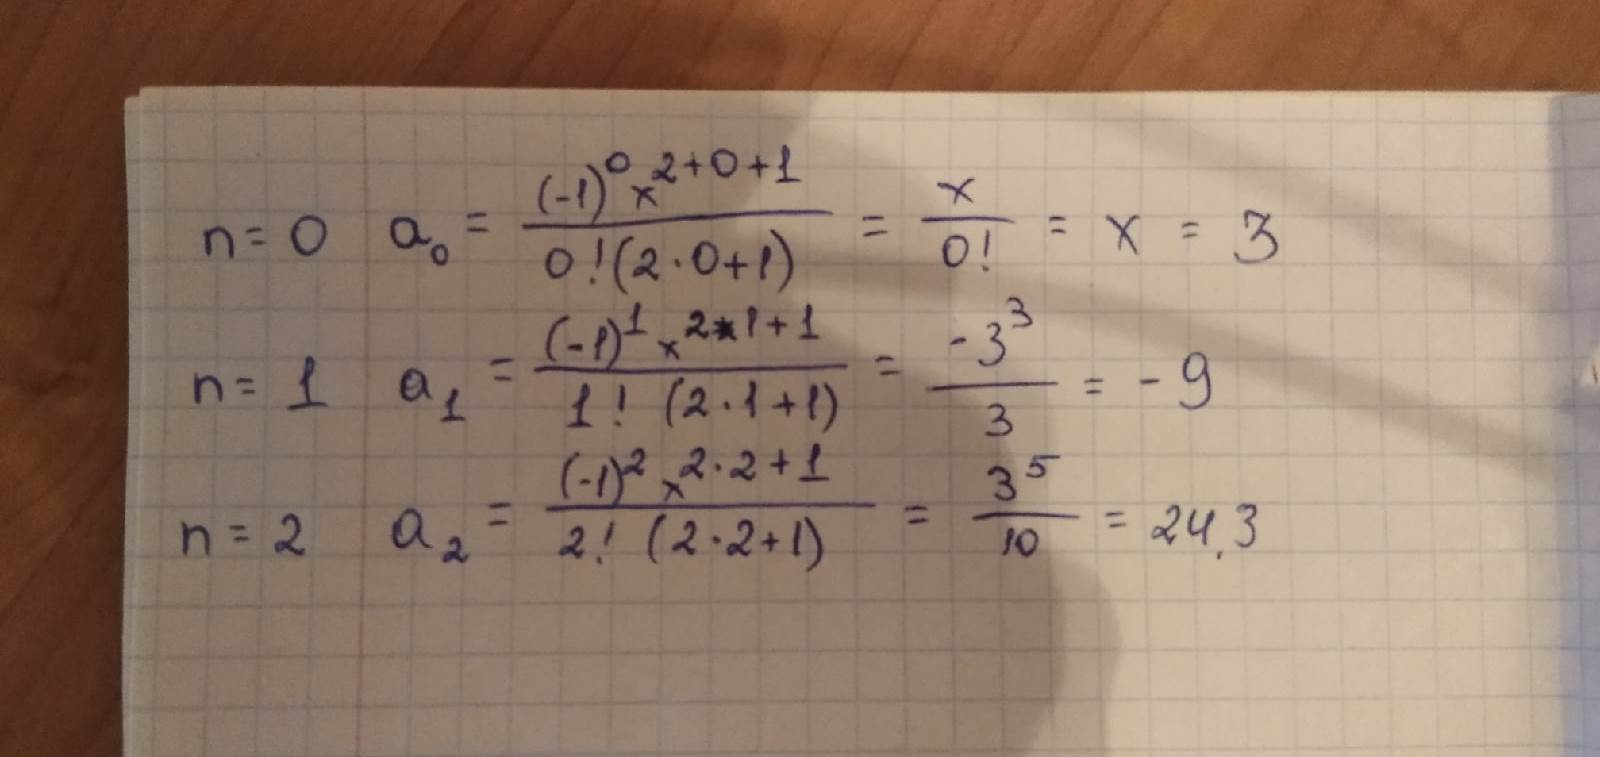 n = 0 a₀ = (-1)⁰x²⁺⁰⁺¹ / 0!(2·0+1) = x / 0! = x = 3
n = 1 a₁ = (-1)¹x²*¹⁺¹ / 1! (2·1+1) = -3³ / 3 = -9
n = 2 a₂ = (-1)²x²·²⁺¹ / 2! (2·2+1) = 3⁵ / 10 = 24.3